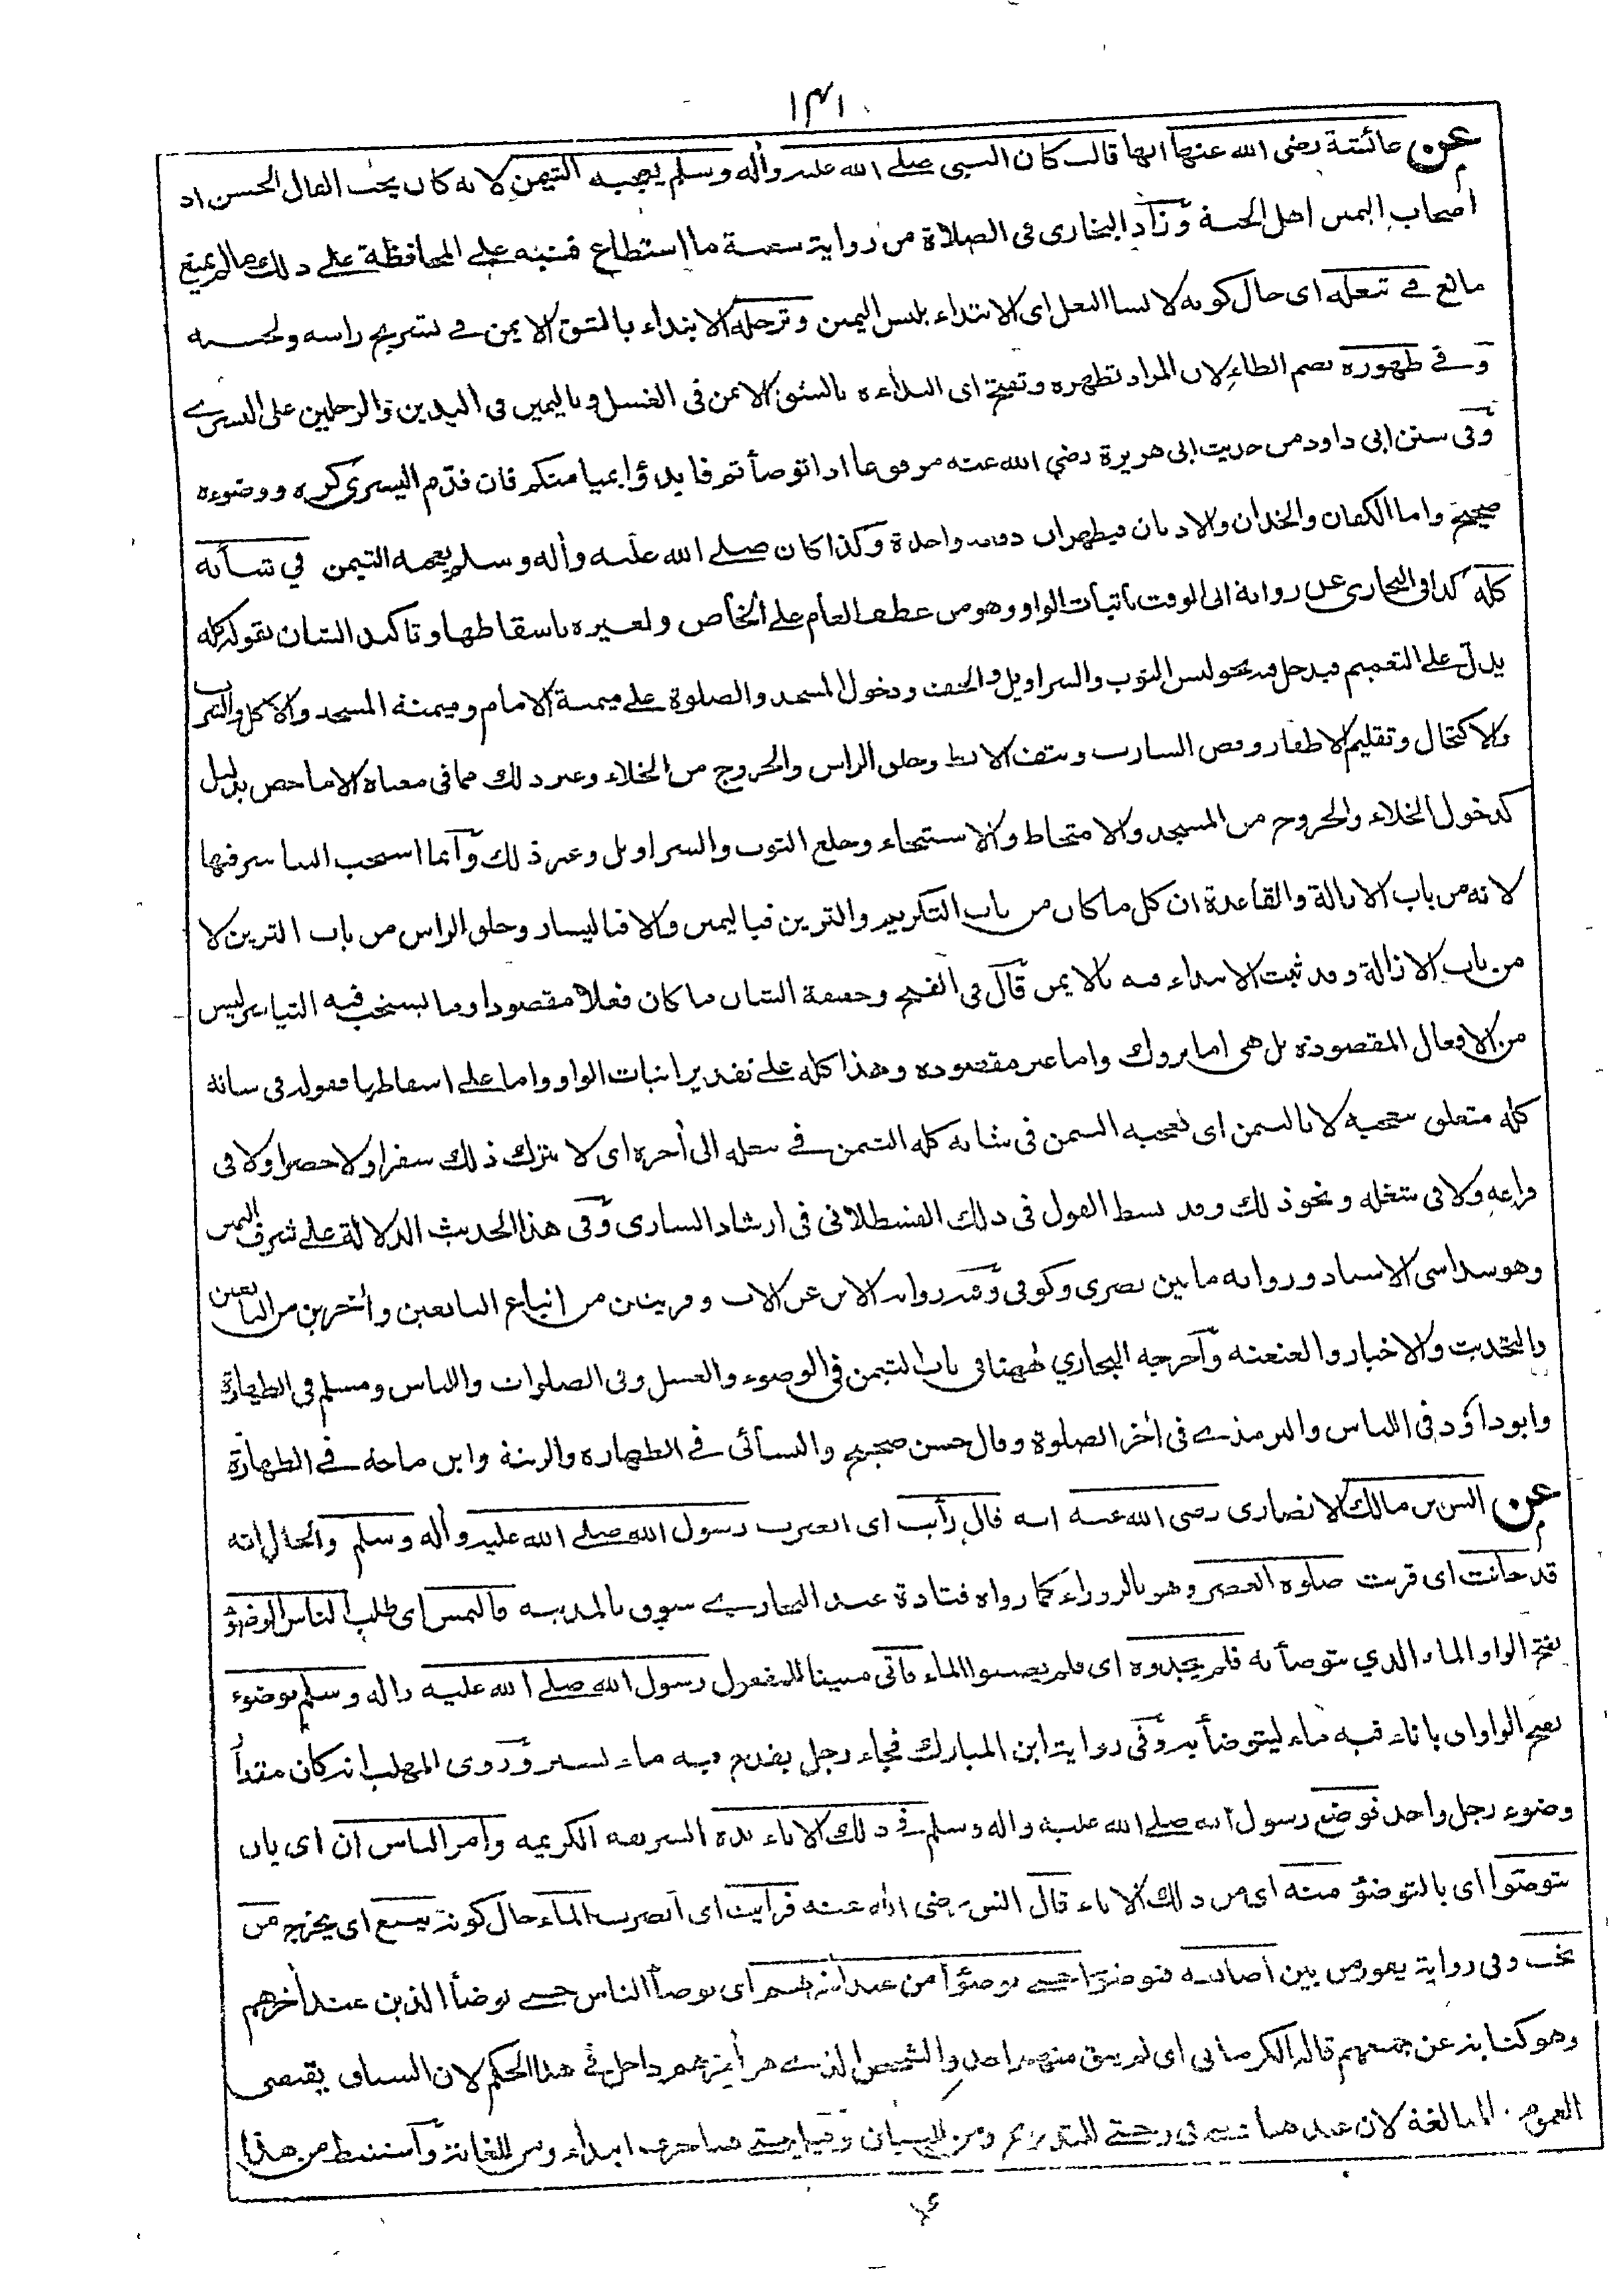 ١٣١
عن عائشة رضى الله عنها انها قالت كان النبى صلے الله عليه وأله وسلم يعجبه التيمن لانه كان يحب الفال الحسن اذ
اصحاب اليمين اهل الجنة وزاد البخارى فى الصلاة من رواية شعبة ما استطاع فنبه علے المحافظة علے ذلك مالم يمنع
مانع فے تنعله اى حال كونه لابسا النعل اى الابتداء بلبس اليمين وترجله الابتداء بالشق الايمن فے تسريح راسه ولحيته
وفے طهوره بضم الطاء لان المراد تطهره وتفتح اى البداءة بالشق الايمن فى الغسل وباليمين فى اليدين والرجلين على اليسرے
وفى سنن ابى داود من حديث ابى هريرة رضي الله عنه مرفوعا اذا توضأتم فابدؤا بميامنكم فان قدّم اليسرى كره ووضوءه
صحيح واما الكفان والخدان والاذنان فيطهران دفعة واحدة وكذا كان صلے الله عليه وأله وسلم يعجبه التيمن في شأنه
كله كذا فى البخارى عن رواية ابى الوقت باثبات الواو وهو من عطف العام علے الخاص ولغيره باسقاطها وتاكيد الشان بقوله كله
يدل علے التعميم فيدخل فيه نحو لبس الثوب والسراويل والخف ودخول المسجد والصلوة علے ميمنة الامام وميمنة المسجد والاكل والشرب
والاكتحال وتقليم الاظفار وقص الشارب ونتف الابط وحلق الراس والخروج من الخلاء وغير ذلك مما فى معناه الا ما خص بدليل
كدخول الخلاء والخروج من المسجد والامتخاط والاستنجاء وخلع الثوب والسراويل وغير ذلك وانما استحب التياسر فيها
لانه من باب الازالة والقاعدة ان كل ما كان من باب التكريم والتزين فباليمين والا فباليسار وحلق الراس من باب التزين لا
من باب الازالة وقد ثبت الابتداء فيه بالايمن قال فى الفتح وحقيقة الشان ما كان فعلا مقصودا وما يستحب فيه التياسر ليس
من الافعال المقصودة بل هى اما تروك واما غير مقصودة وهذا كله علے تقدير اثبات الواو واما علے اسقاطها فقوله فى شانه
كله متعلق بيعجبه لا بالتيمن اى يعجبه التيمن فى شانه كله التيمن فے تنعله الى أخره اى لا يترك ذلك سفرا ولا حضرا ولا فى
فراغه ولا فى شغله ونحو ذلك وقد بسط القول فى ذلك القسطلانى فى ارشاد السارى وفى هذا الحديث الدلالة علے شرف اليمين
وهو سداسى الاسناد ورواته ما بين بصرى وكوفى وفيه رواية الابن عن الاب وقرينان من اتباع التابعين وأخرين من التابعين
والتحديث والاخبار والعنعنة وأخرجه البخاري ههنا فى باب التيمن فى الوضوء والغسل وفى الصلوات واللباس ومسلم فى الطهارة
وابو داؤد فى اللباس والترمذے فى أخر الصلوة وقال حسن صحيح والنسائى فے الطهارة والزينة وابن ماجة فے الطهارة
عن انس بن مالك الانصارى رضى الله عنه انه قال رأيت اى ابصرت رسول الله صلے الله عليه وأله وسلم والحال انه
قد حانت اى قربت صلوة العصر وهو بالزوراء كما رواه قتادة عند البخارے سوق بالمدينة فالتمس اى طلب الناس الوضوؤ
بفتح الواو الماء الذي يتوضأ به فلم يجدوه اى فلم يصيبوا الماء فاتى مبينا للمفعول رسول الله صلے الله عليه واله وسلم بوضوء
بفتح الواو اى باناء فيه ماء ليتوضأ به وفى رواية ابن المبارك فجاء رجل بقدح فيه ماء يسير وروى المهلب انه كان مقدار
وضوء رجل واحد فوضع رسول الله صلے الله عليه واله وسلم فے ذلك الاناء يده الشريفة الكريمة وأمر الناس ان اى بان
يتوضؤا اى بالتوضؤ منه اى من ذلك الاناء قال انس رضى الله عنه فرأيت اى ابصرت الماء حال كونه ينبع اى يخرج من
تحت وفى رواية يفور من بين اصابعه فتوضؤا حتے توضؤا من عند أخرهم اى توضأ الناس حتے توضأ الذين عند أخرهم
وهو كناية عن جميعهم قاله الكرمانى اى لم يبق منهم احد والشخص الذے هو أخرهم داخل فے هذا الحكم لان السياق يقتضى
العموم والمبالغة لان عند هنا فى وحتے للتدريج ومن للبيان للغاية وأستنبط من هذا